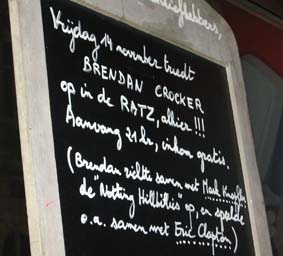 liefhebbers,
Vrijdag 14 november treedt
BRENDAN CROCKER
op in de RATZ, alhier!!!
Aanvang 21 hr, inkom gratis.
(Brendan richtte samen met Mark Knopfler
de "Notting Hillbillies" op, en speelde
o.a. samen met Eric Clapton)